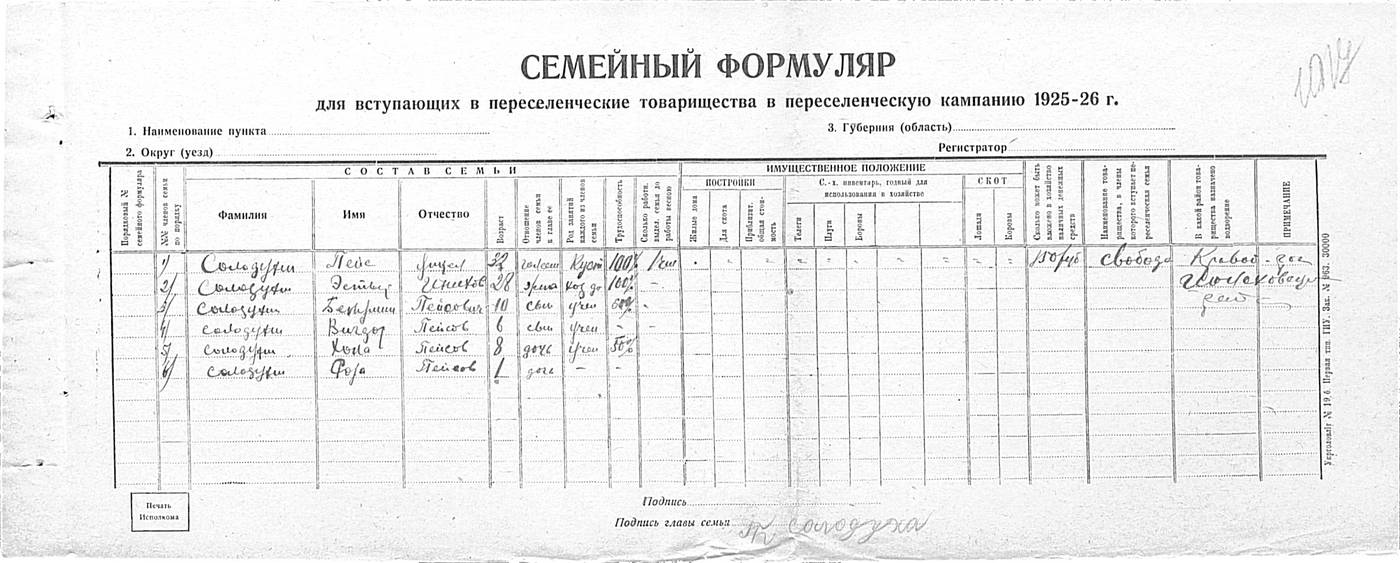 СЕМЕЙНЫЙ ФОРМУЛЯР
для вступающих в переселенческие товарищества в переселенческую кампанию 1925-26 г.
1. Наименование пункта
3. Губерния (область)
2. Округ (уезд)
Регистратор
Порядковый № семейного формуляра
№№ членов семьи по порядку
СОСТАВ СЕМЬИ
Фамилия
Имя
Отчество
Возраст
Отношение членов семьи к главе ее
Род занятий каждого из членов семьи
Трудоспособность
Сколько работн. выдел. семья до работы весною
ИМУЩЕСТВЕННОЕ ПОЛОЖЕНИЕ
ПОСТРОЙКИ
Жилые дома
Для скота
Приблизит. общая стоимость
С.-х. инвентарь, годный для использования в хозяйстве
Телеги
Плуги
Бороны
СКОТ
Лошади
Коровы
Сколько может быть вложено в хозяйство наличных денежных средств
Наименование товарищества, в члены которого вступает переселенческая семья
В какой район товарищества назначено водворение
ПРИМЕЧАНИЕ
1) Солодухи Пейс 32 Куст 100% 150 руб свобода Кривой
2) Солодухи 28 жена 100%
3) Солодухи Пейсович 10 сын учен 60%
4) Солодухи Вигдор Пейсов 6 сын учен - -
5) Солодухи Хона Пейсов 8 дочь учен 50%
6) Солодухи Фоза Пейсов 1 дочь - -
Печать Исполкома
Подпись
Подпись главы семьи Солодуха
Укрголовліт № 19,6. Первая тип. ГИУ. Зак. № 963. 30000